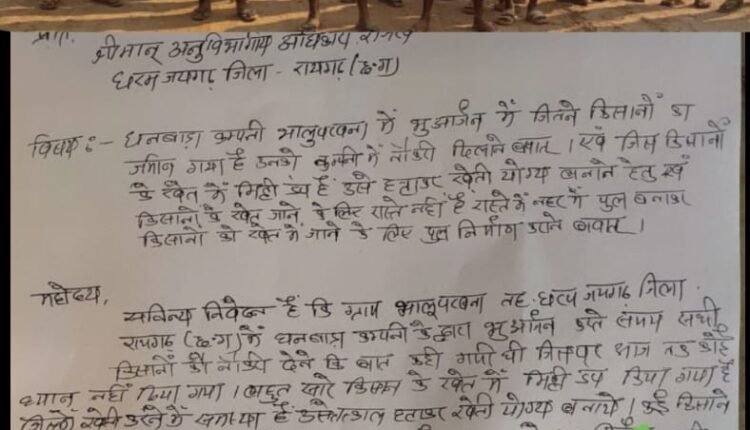 प्रति,
श्रीमान् अनुविभागीय अधिकारी राजस्व
धरमजयगढ़ जिला - रायगढ़ (छ.ग)
विषय :- धनबाद्रा कम्पनी भालुपखना में भुअर्जन में जितने किसानों का
जमीन गया है उनको कम्पनी में नौकरी दिलाने बाबत । एवं जिस किसानों
के खेत में मिट्टी डंप है उसे हटाकर खेती योग्य बनाने हेतु एवं
किसानों के खेत जाने के लिए रास्ते नहीं है रास्ते में नहर में पुल बनाकर
किसानो को खेत में जाने के लिए पुल निर्माण करने बाबत ।
महोदय,
सविनय निवेदन है कि ग्राम भालुपखना तह. धरम जयगढ़ जिला.
रायगढ़ (छ.ग) में धनबाद्रा कम्पनी के द्वारा भुअर्जन करते समय सभी
किसानों को नौकरी देने कि बात कही गयी थी जिसपर आज तक कोई
ध्यान नहीं दिया गया । बहुत सारे किसान के खेत में मिट्टी डंप किया गया है
जिससे खेती करने में समस्या है उसे तत्काल हटाकर खेती योग्य बनाये । कई किसान